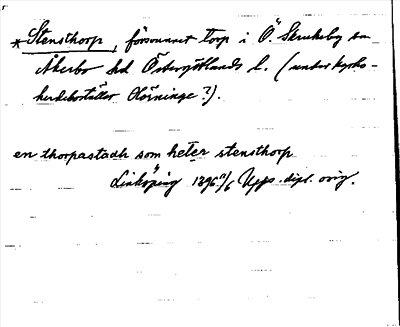 *Stensthorp, försvunnet torp i Ö Skrukeby sn
Åkerbo hd Östergötlands l. (under kyrko-
herdebostället Hörninge?).
en thorpastadh som heter stensthorp
Linköping 1396 11/6 Upps. dipl. orig.